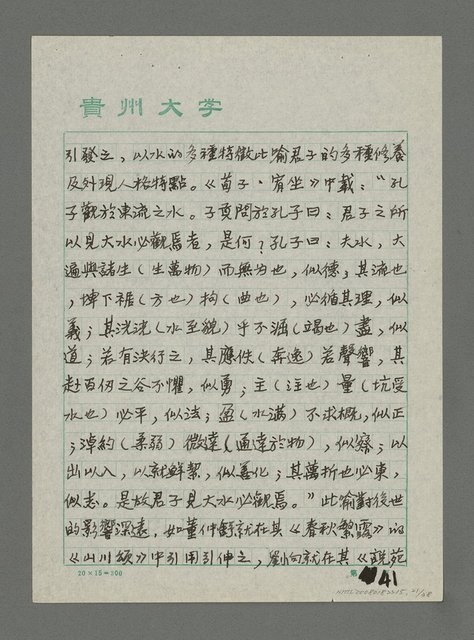 貴州大学
引發之，以水的多種特徵比喻君子的多種修養
及外現人格特點。《荀子·宥坐》中載："孔
子觀於東流之水。子貢問於孔子曰：君子之所
以見大水必觀焉者，是何？孔子曰：夫水，大
遍與諸生（生萬物）而無為也，似德；其流也
，埤下裾（方也）拘（曲也），必循其理，似
義；其洸洸（水至貌）乎不淈（竭也）盡，似
道；若有決行之，其應佚（奔逸）若聲響，其
赴百仞之谷不懼，似勇；主（注也）量（坑受
水也）必平，似法；盈（水滿）不求概，似正
；淖約（柔弱）微達（通達於物），似察；以
出以入，以就鮮絜，似善化；其萬折也必東，
似志。是故君子見大水必觀焉。"此喻對後世
的影響深遠，如董仲舒就在其《春秋繁露》的
《山川頌》中引用引伸之，劉向就在其《說苑
20×15=300
第 41